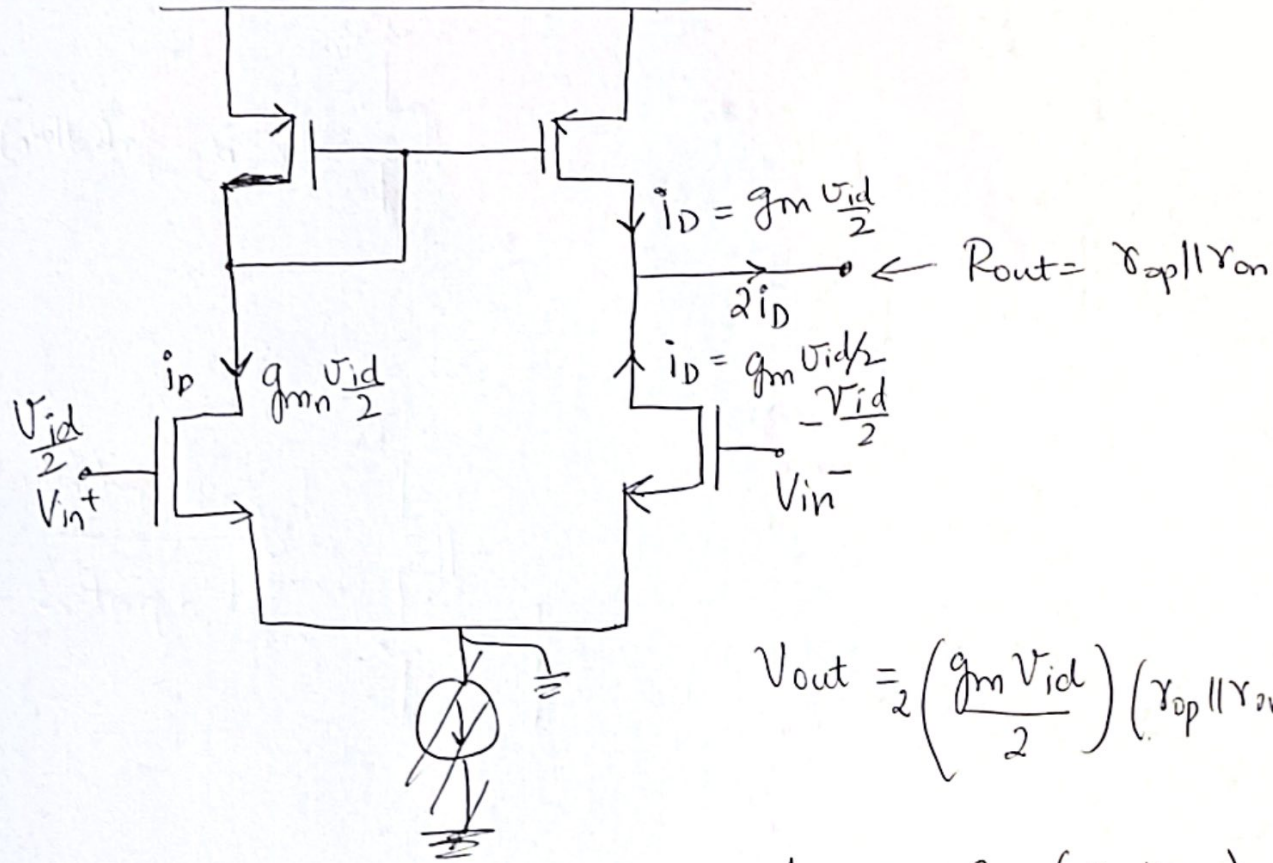 i_D = g_m v_id/2
2i_D
← R_out = r_op || r_on
i_D
g_mn v_id/2
i_D = g_m v_id/2
-v_id/2
V_in^-
v_id/2
V_in^+
V_out = 2 (g_m V_id / 2) (r_op || r_on